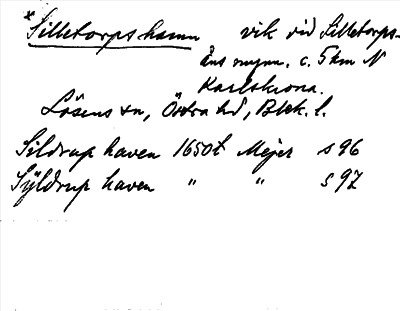 *Silletorps hamn vik vid Silletorps-
åns mynn. c. 5 km N
Karlskrona.
Lösens sn, Östra hd, Blek. l.
Sildrup haven 1650t Mejer s 96
Syldrup haven " " s 97